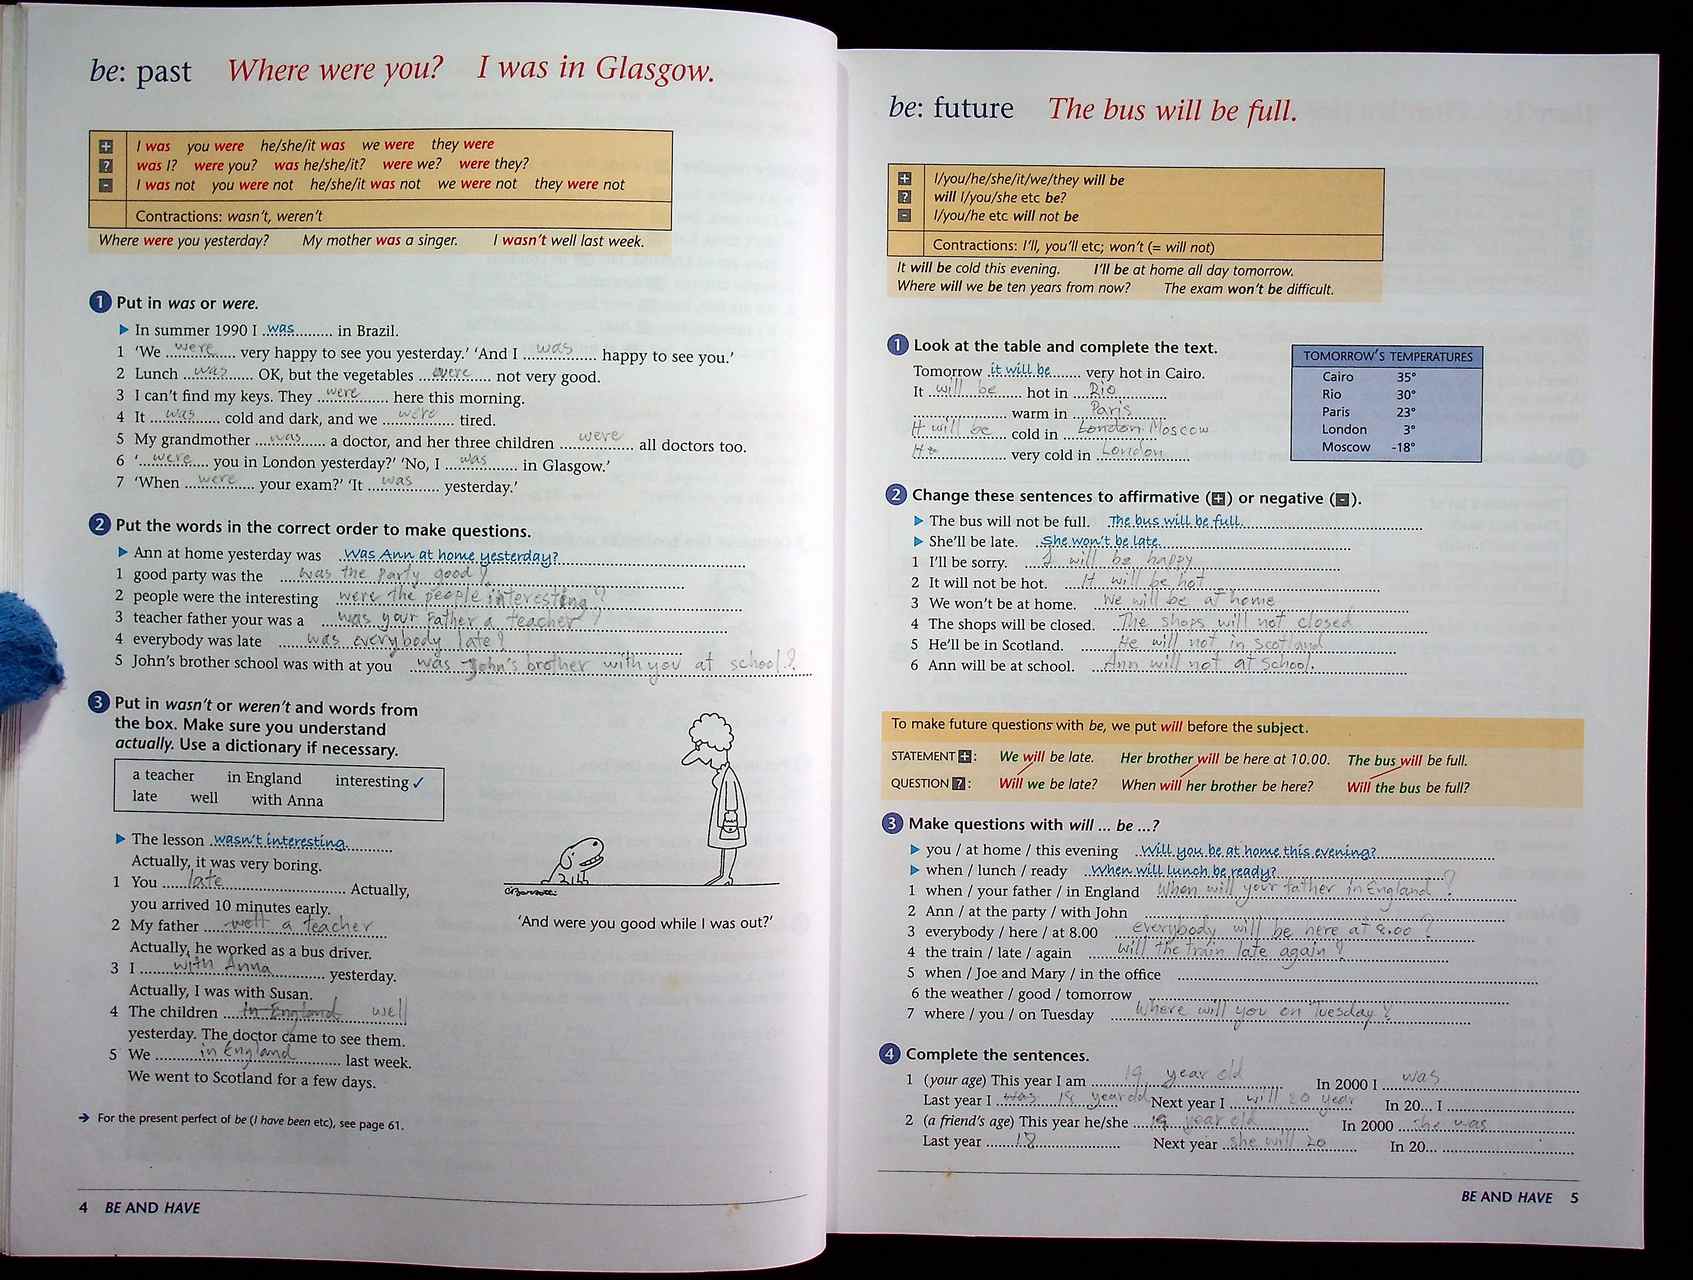 be: past Where were you? I was in Glasgow.
+ I was you were he/she/it was we were they were
? was I? were you? was he/she/it? were we? were they?
- I was not you were not he/she/it was not we were not they were not
Contractions: wasn't, weren't
Where were you yesterday? My mother was a singer. I wasn't well last week.
1 Put in was or were.
▶ In summer 1990 I was in Brazil.
1 'We were very happy to see you yesterday.' 'And I was happy to see you.'
2 Lunch was OK, but the vegetables were not very good.
3 I can't find my keys. They were here this morning.
4 It was cold and dark, and we were tired.
5 My grandmother was a doctor, and her three children were all doctors too.
6 'were you in London yesterday?' 'No, I was in Glasgow.'
7 'When were your exam?' 'It was yesterday.'
2 Put the words in the correct order to make questions.
▶ Ann at home yesterday was Was Ann at home yesterday?
1 good party was the was the party good?
2 people were the interesting were the people interesting?
3 teacher father your was a was your father a teacher?
4 everybody was late was everybody late?
5 John's brother school was with at you was John's brother with you at school?
3 Put in wasn't or weren't and words from
the box. Make sure you understand
actually. Use a dictionary if necessary.
a teacher in England interesting ✓
late well with Anna
▶ The lesson wasn't interesting.
Actually, it was very boring.
1 You late Actually,
you arrived 10 minutes early.
2 My father well a teacher
Actually, he worked as a bus driver.
3 I with Anna yesterday.
Actually, I was with Susan.
4 The children in England well
yesterday. The doctor came to see them.
5 We in England last week.
We went to Scotland for a few days.
'And were you good while I was out?'
→ For the present perfect of be (I have been etc), see page 61.
4 BE AND HAVE
be: future The bus will be full.
+ I/you/he/she/it/we/they will be
? will I/you/she etc be?
- I/you/he etc will not be
Contractions: I'll, you'll etc; won't (= will not)
It will be cold this evening. I'll be at home all day tomorrow.
Where will we be ten years from now? The exam won't be difficult.
1 Look at the table and complete the text.
Tomorrow it will be very hot in Cairo.
It will be hot in Rio
warm in Paris
It will be cold in London Moscow
very cold in London
TOMORROW'S TEMPERATURES
Cairo 35°
Rio 30°
Paris 23°
London 3°
Moscow -18°
2 Change these sentences to affirmative (+) or negative (-).
▶ The bus will not be full. The bus will be full.
▶ She'll be late. She won't be late.
1 I'll be sorry. I will be happy
2 It will not be hot. It will be hot
3 We won't be at home. We will be at home
4 The shops will be closed. The shops will not closed
5 He'll be in Scotland. He will not in scotland
6 Ann will be at school. Ann will not at school.
To make future questions with be, we put will before the subject.
STATEMENT +: We will be late. Her brother will be here at 10.00. The bus will be full.
QUESTION ?: Will we be late? When will her brother be here? Will the bus be full?
3 Make questions with will ... be ...?
▶ you / at home / this evening Will you be at home this evening?
▶ when / lunch / ready When will lunch be ready?
1 when / your father / in England When will your father in England?
2 Ann / at the party / with John
3 everybody / here / at 8.00 everybody will be here at 8.00?
4 the train / late / again will the train late again?
5 when / Joe and Mary / in the office
6 the weather / good / tomorrow
7 where / you / on Tuesday Where will you on Tuesday?
4 Complete the sentences.
1 (your age) This year I am 19 year old In 2000 I was
Last year I was 18 year old Next year I will 20 year In 20... I
2 (a friend's age) This year he/she 19 year old In 2000 she was
Last year 18 Next year she will 20 In 20...
BE AND HAVE 5